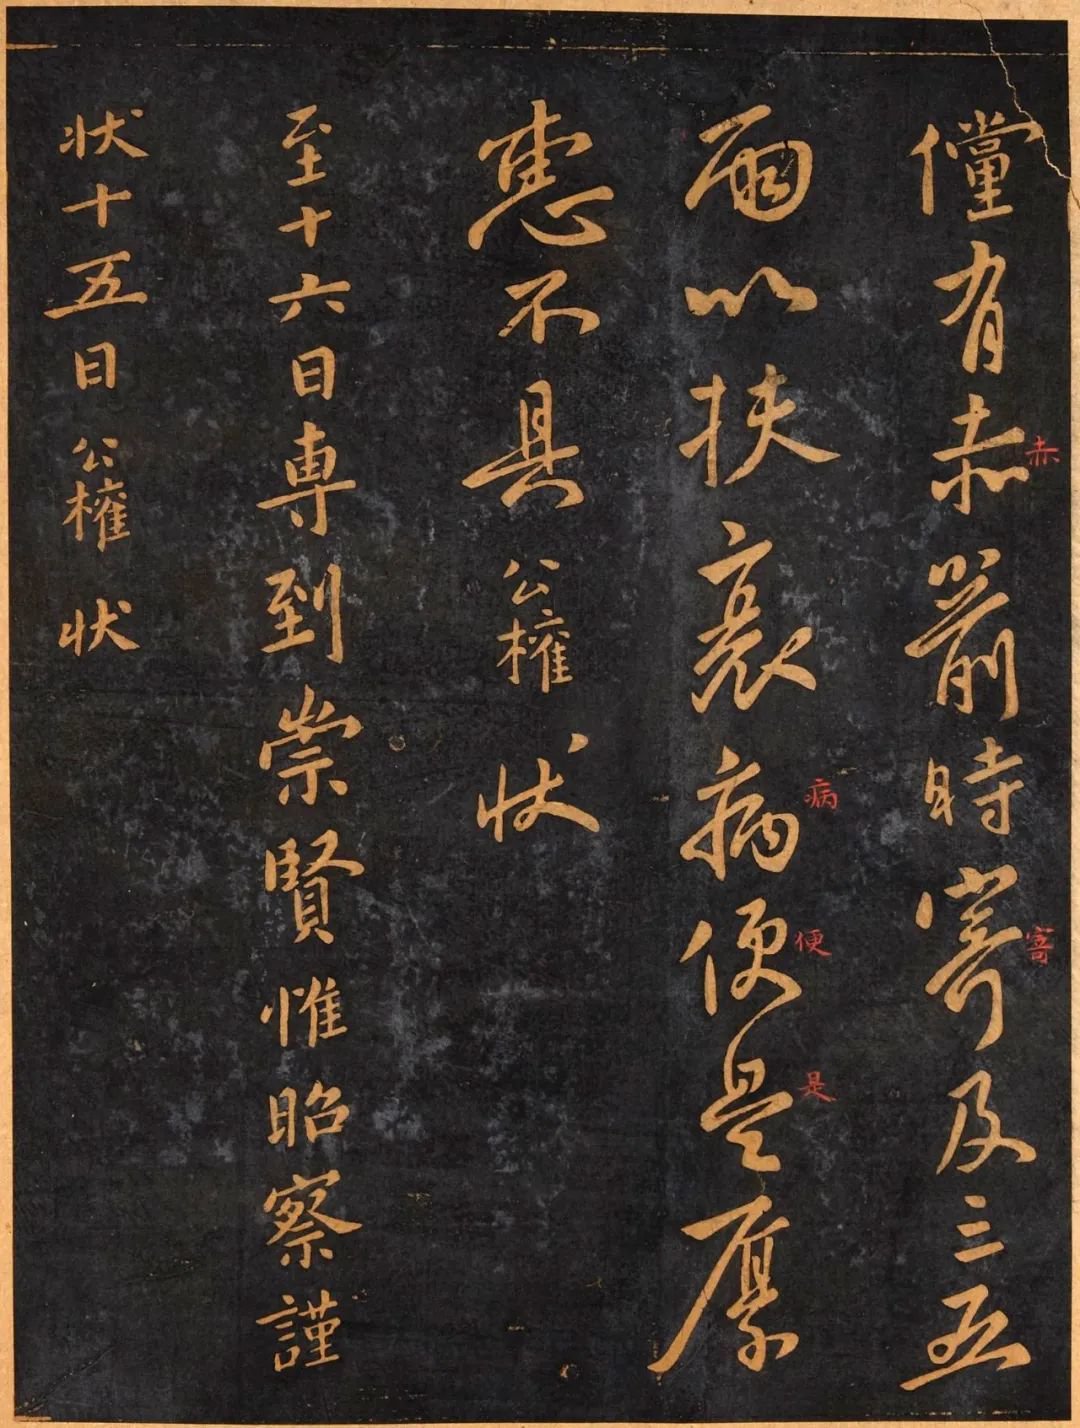 儻有赤箭時寄及三五
赤
寄
兩以扶衰病便是厚
病
便
是
惠不具公權狀
至十六日專到崇賢惟昭察謹
狀十五日公權狀